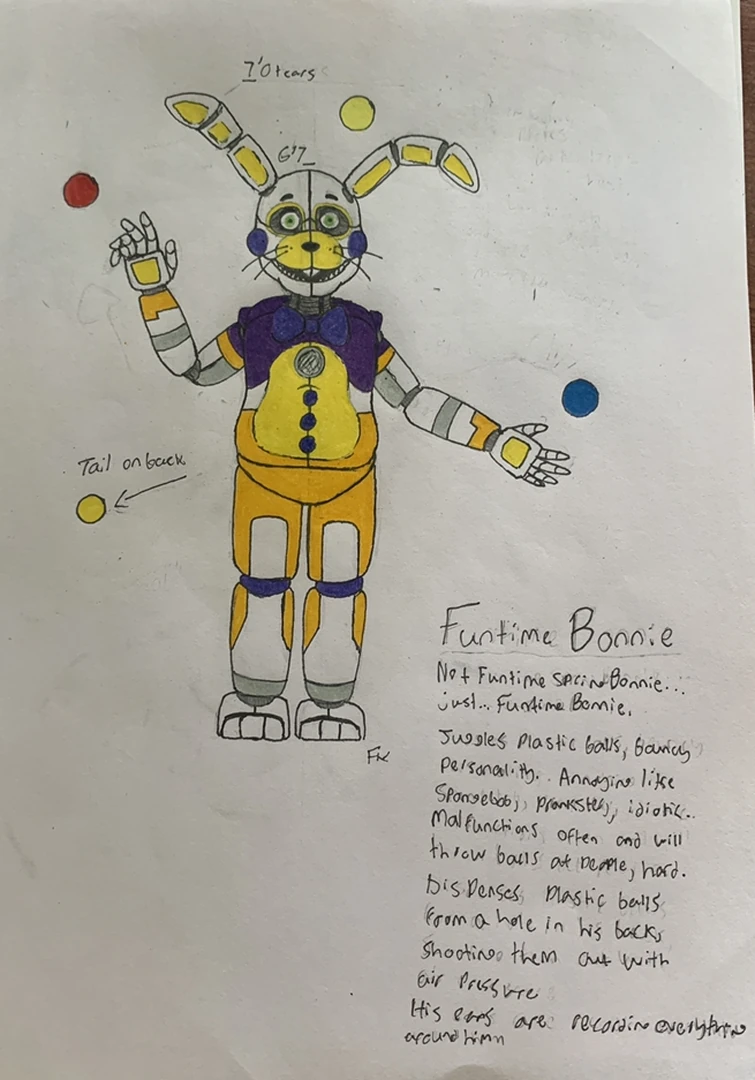 7'0 to ears
6'7
Tail on back
Funtime Bonnie
Not Funtime SpringBonnie...
just... Funtime Bonnie.
Juggles Plastic balls, bouncy
Personality. Annoying like
Spongebob, prankster, idiotic..
Malfunctions often and will
throw balls at people, hard.
Dispenses Plastic balls
from a hole in his back,
shooting them out with
air Pressure
His ears are recording everything
around him